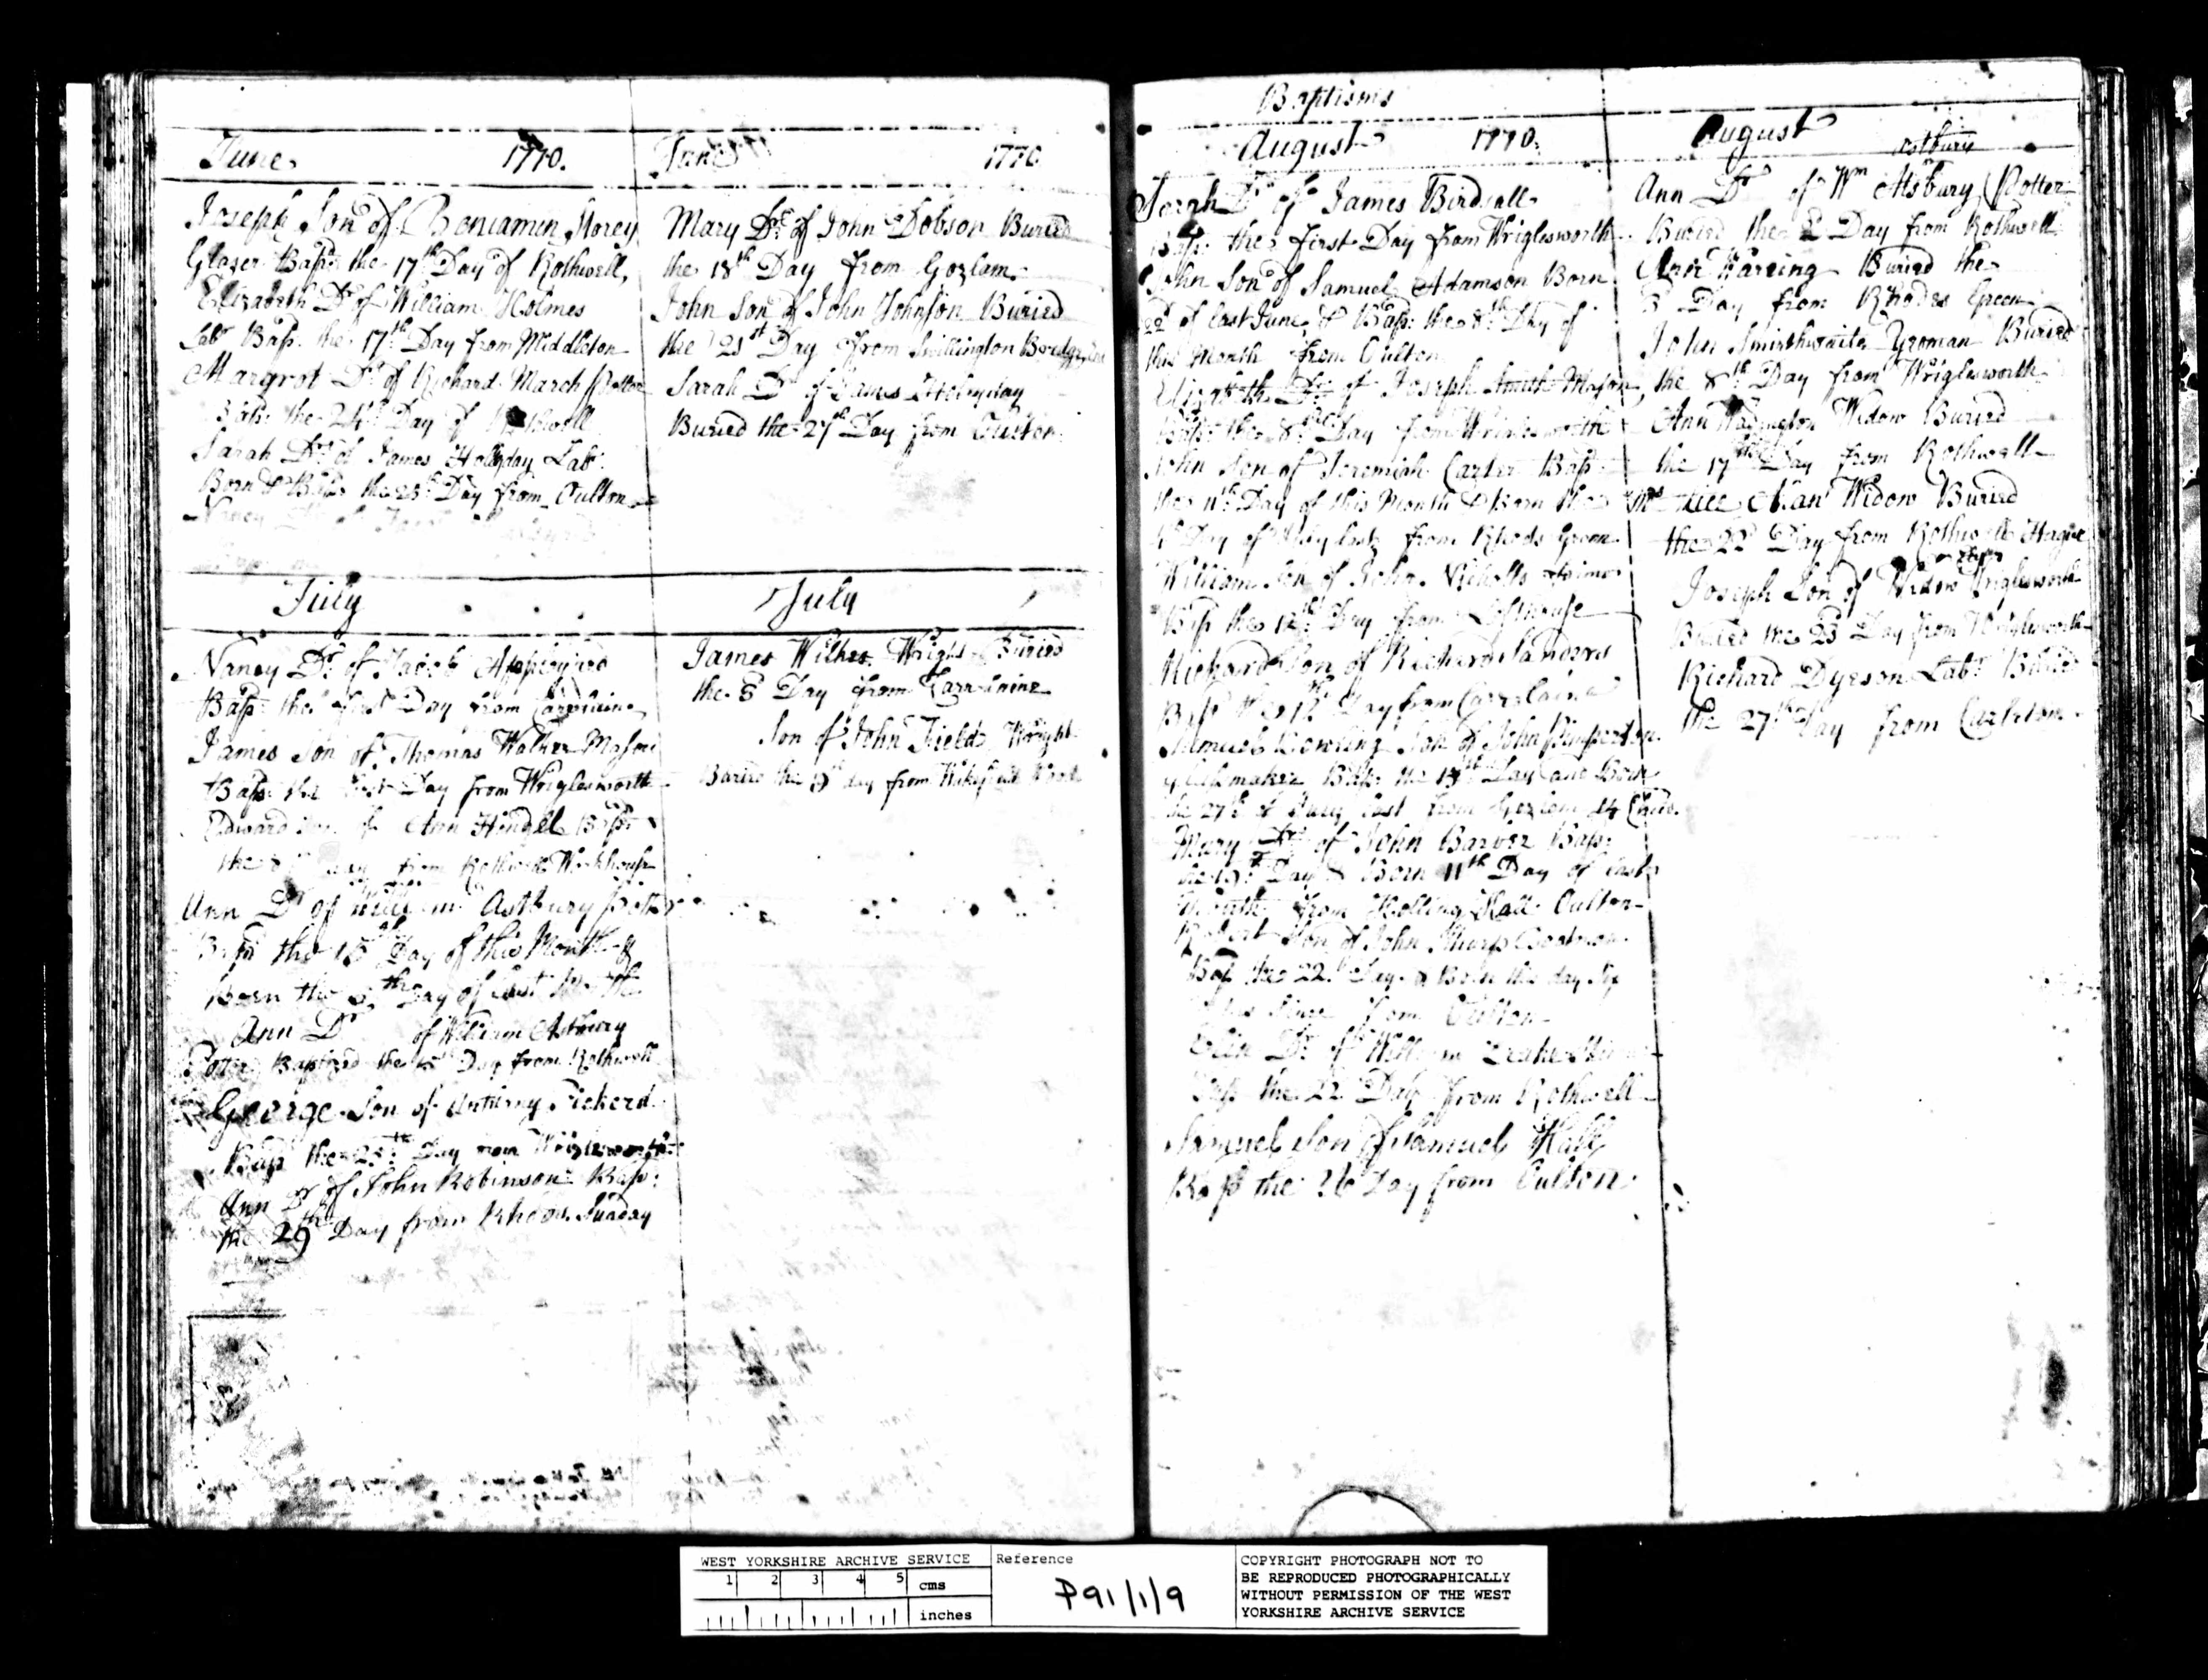 June 1770.
Joseph Son of Benjamin Storey
Glaser Bap: the 17th Day of Rothwell,
Elizabeth Dr of William Holmes
Labr Bap: the 17th Day from Middleton
Margret Dr of Richard March Potter
Bap: the 24th Day of Rothwell
Sarah Dr of James Hollyday Labr:
Born & Bap: the 25th Day from Oulton
Nancy
June 1770
Mary Dr: of John Dobson Buried
the 18th Day from Gozlam
John Son of John Johnson Buried
the 21st Day from Swillington Bridge
Sarah Dr of James Holyday
Buried the 27th Day from Oulton
July
Nancy Dr: of Jacob Appleyard
Bap: the first Day from
James Son of Thomas Walker Mason
Bap: the first Day from Wriglesworth
Edward Son of Ann Hingel Bap:
the Day from Rothwell Workhouse
Ann Dr of William Astbury Potter
Bap: the 15th Day of this Month &
Born the Day of last Month
Ann Dr of William Astbury
Potter Baptized the 15 Day from Rothwell
George Son of Anthony Pickerd
Bap the 25th Day from Wriglesworth
Ann Dr of John Robinson Bap:
the 29th Day from Rhods Sunday
July
James Wilkes Wright Buried
the 8 Day from
Son of John Field Wright
Buried the day from Wakefield
Baptisms
August 1770.
Sarah Dr of James Birdsall
Bap: the first Day from Wriglesworth
John Son of Samuel Adamson Born
22d of last June & Bap: the 8th Day of
this Month from Oulton
Elizabeth Dr: of Joseph Smith Mason
Bap: the 8th Day from Wriglesworth
John Son of Jeremiah Carter Bap:
the 11th Day of this Month & Born the
Day of July last from Rhods Green
William Son of John Nicholls
Bap the 12th Day from Lofthouse
Richard Son of Richard Sanders
Bap the 12th Day from Carrslaine
Samuel Dowling Son of John Pimperton
Bap: the 19th Day and Born
the 27th of July last from Gozlom 14 Child.
Mary Dr: of John Barber Bap:
the 19th Day & Born 11th Day of last
Month from Holling Hall Oulton
Robert Son of John Sharp
Bap the 22d Day & Born this day Six
from Oulton
Dr of William
Bap the 22 Day from Rothwell
Samuel Son of Samuel Hall
Bap the 26 Day from Oulton
August
Astbury
Ann Dr of Wm Atsbury Potter
Buried the 2 Day from Rothwell
Ann Waring Buried the
3 Day from Rhodes Green
John Smirthwaite Yeoman Buried
the 8th Day from Wriglesworth
Ann Widow Buried
the 17th Day from Rothwell
Widow Buried
the 22d Day from Rothwell Hague
Joseph Son of Widow Wriglesworth
Buried the 23 Day from Wriglesworth
Richard Dyeson Labr Buried
the 27th Day from Carleton
WEST YORKSHIRE ARCHIVE SERVICE
1 2 3 4 5 cms
inches
Reference
P91/1/9
COPYRIGHT PHOTOGRAPH NOT TO
BE REPRODUCED PHOTOGRAPHICALLY
WITHOUT PERMISSION OF THE WEST
YORKSHIRE ARCHIVE SERVICE